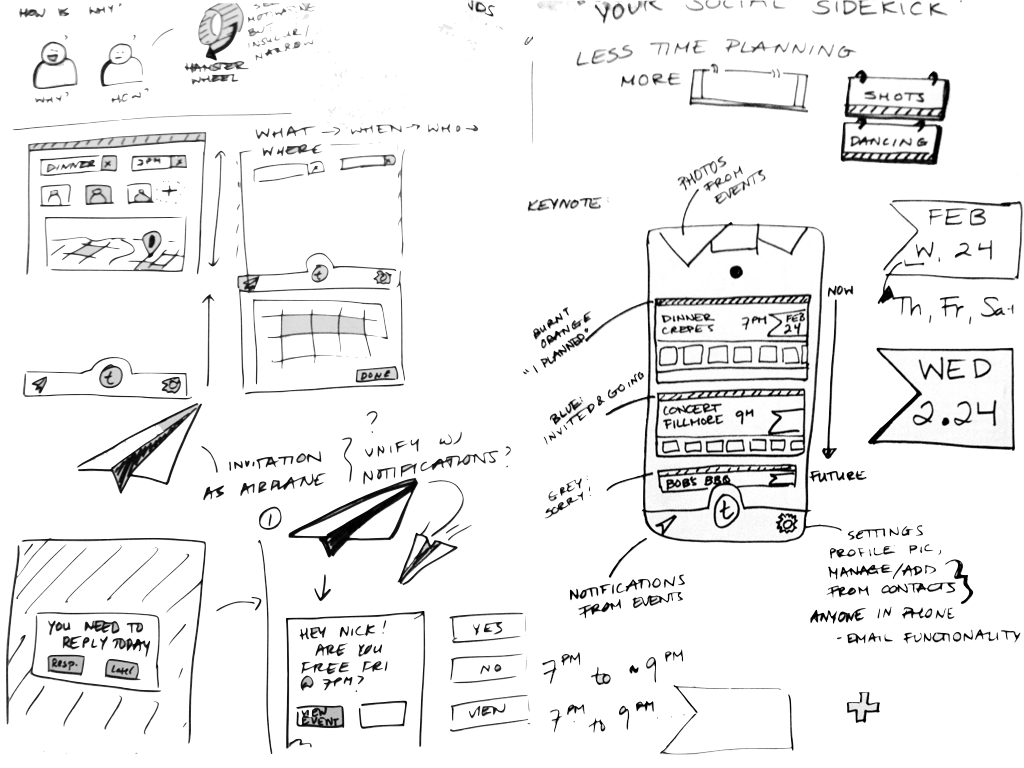 HOW IS WHY?
WHY?
HOW?
BUT
INSULAR/
NARROW
HAMSTER
WHEEL
VDS
"YOUR SOCIAL SIDEKICK"
LESS TIME PLANNING
MORE
SHOTS
DANCING
WHAT → WHEN → WHO →
WHERE
DINNER x
7PM x
+
t
DONE
t
INVITATION
AS AIRPLANE
?
UNIFY W/
NOTIFICATIONS?
YOU NEED TO
REPLY TODAY
RESP.
LATER
1
HEY NICK!
ARE YOU
FREE FRI
@ 7PM?
VIEW
EVENT
YES
NO
VIEW
KEYNOTE:
PHOTOS
FROM
EVENTS
BURNT
ORANGE
"I PLANNED"
BLUE:
INVITED & GOING
GREY:
SORRY!
DINNER
CREPES
7PM
FEB
24
CONCERT
FILLMORE
9PM
BOB'S BBQ
t
NOW
FUTURE
NOTIFICATIONS
FROM EVENTS
SETTINGS
PROFILE PIC,
MANAGE/ADD
FROM CONTACTS
ANYONE IN PHONE
- EMAIL FUNCTIONALITY
FEB
W. 24
Th, Fr, Sat
WED
2.24
7PM to ~ 9PM
7PM to 9PM